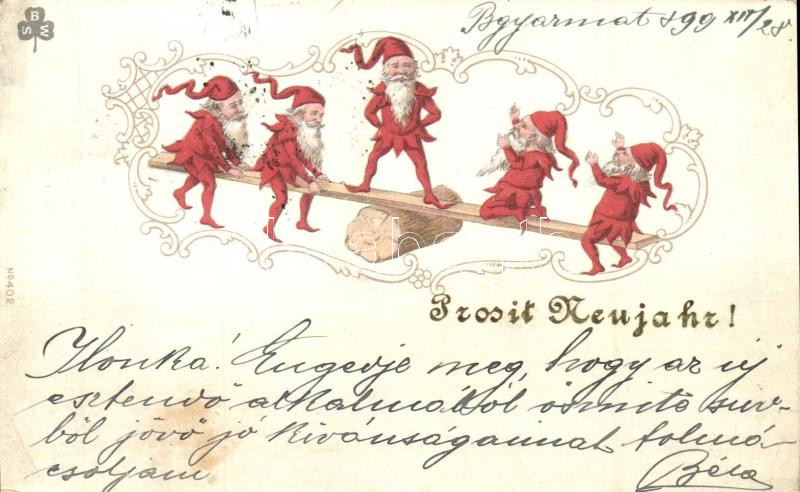 BWS
Bgyarmat 899 XII/28.
No 402
Prosit Neujahr!
Ilonka! Engedje meg, hogy az új
esztendő alkalmából őszinte szív-
ből jövő jó kivánságaimat tolmá-
csoljam Béla